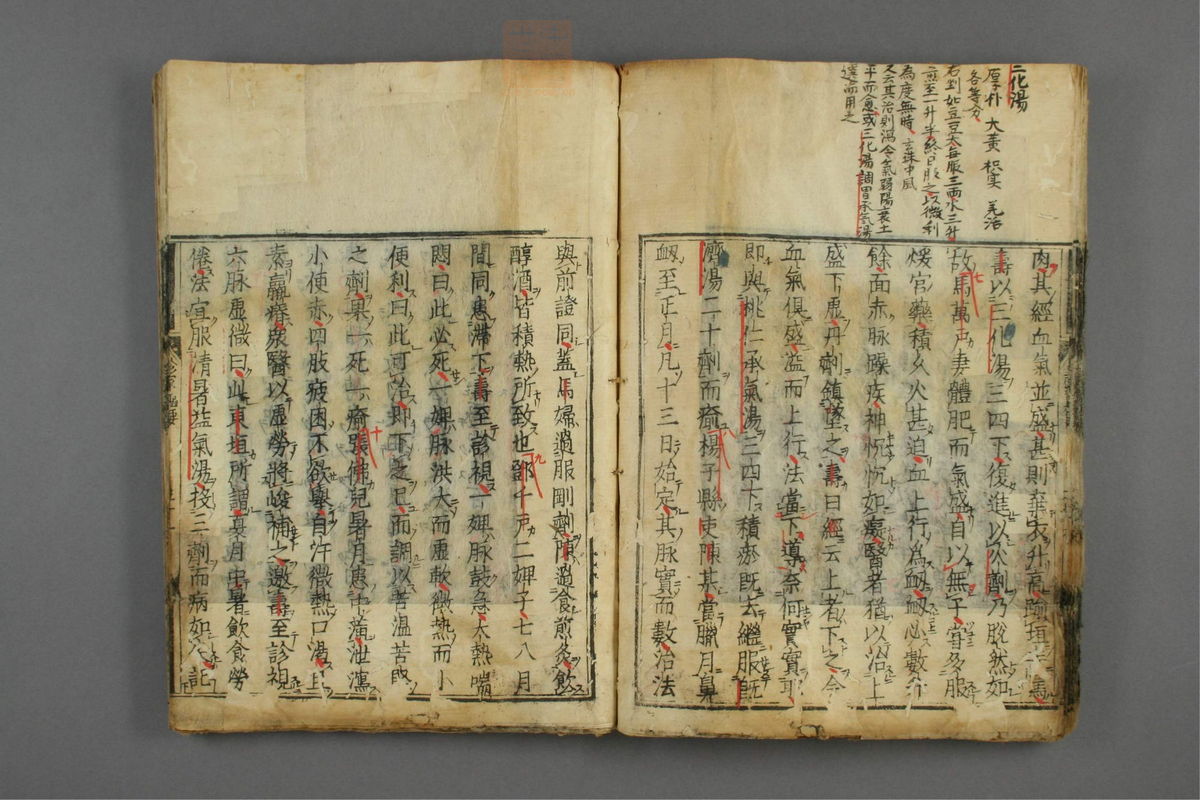 三化湯
厚朴 大黃 枳實 羌活
各等分
右剉如豆豆大每服三兩水三升
煎至一升半終日服之以微利
為度無時 玄珠中風
又云其治則瀉令氣弱陽衰土
平而愈或三化湯調胃承氣湯
選而用之
肉其經血氣並盛甚則棄衣升高踰垣
壽以三化湯三四下復進以火劑乃脫然如
故馬萬戶妻體肥而氣盛自以無子嘗多服
煖宮藥積久火甚迫血上行為衄衄必數升
餘面赤脉躁疾神恍恍如癡醫者猶以治上
盛下虛丹劑鎮墜之壽曰經云上者下之今
血氣俱盛溢而上行法當下導奈何實實耶
即與桃仁承氣湯三四下積瘀既去繼服既
濟湯二十劑而瘉楊子縣吏陳某當臘月鼻
衄至正月凡十三日始定其脉實而數治法
與前證同蓋馬婦過服剛劑陳過食煎炙飲
醇酒皆積熱所致也鄧千戶二婢子七八月
間同患滯下壽至診視一婢脉鼓急大熱喘
悶曰此必死一婢脉洪大而虛軟微熱而小
便利曰此可治即下之已而調以苦温苦堅
之劑果一死一瘉張佛兒暑月患中滿泄瀉
小便赤四肢疲困不欲舉自汗微熱口渴且
素羸瘠衆醫以虛勞將峻補之邀壽至診視
六脉虛微曰此東垣所謂夏月中暑飲食勞
倦法宜服清暑益氣湯投三劑而病如失記